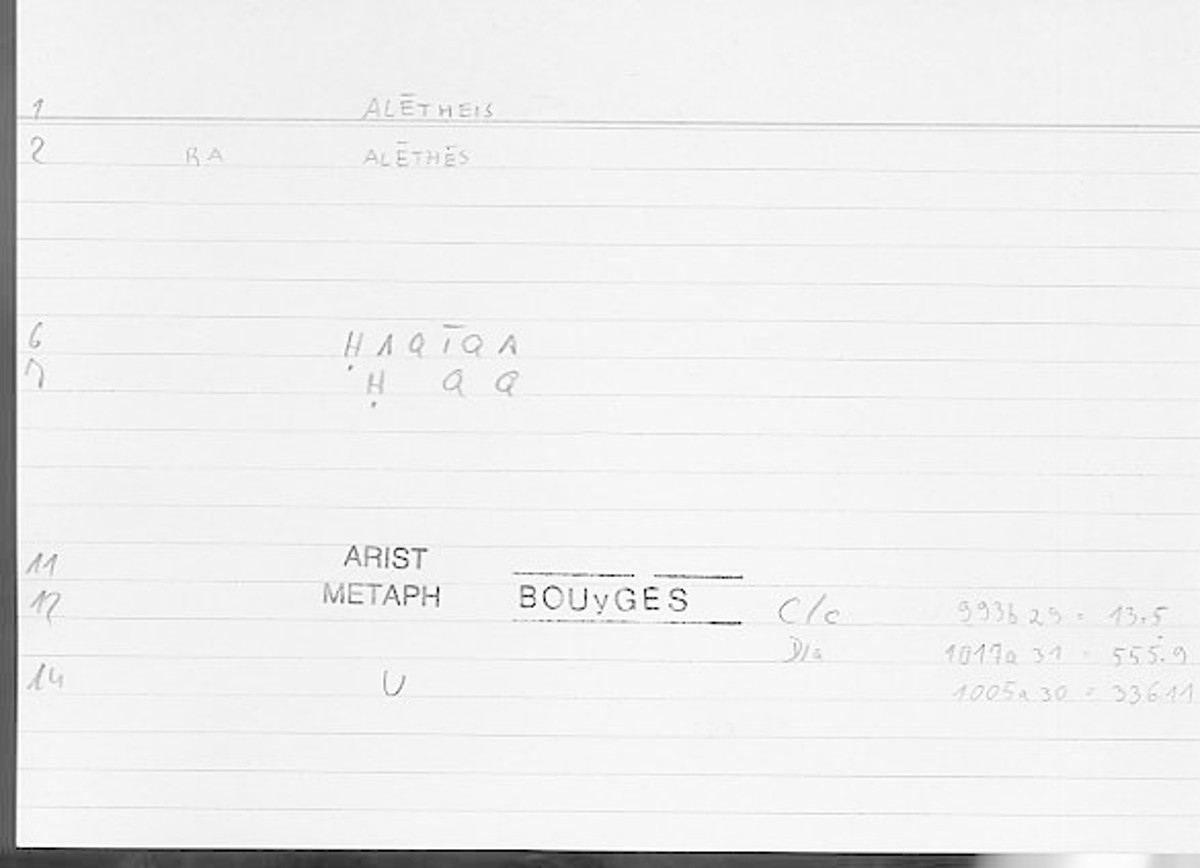 1 ALĒTHEIS
2 RA ALĒTHĒS
6 Ḥ A Q Ī Q A
7 Ḥ Q Q
11 ARIST
12 METAPH BOUyGES C/c 993b 29 = 13.5
D/a 1017a 31 = 555.9
14 U 1005a 30 = 336 11